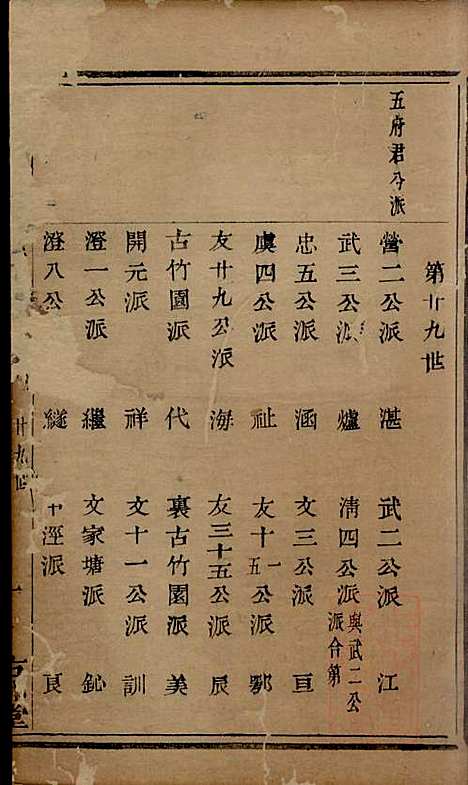 五府君分派
第廿九世
營二公派 湛 武二公派 江
武三公派 爐 清四公派 與武二公派合第
忠五公派 涵 文三公派 亘
虞四公派 祉 友十五公派 鄂
友廿九公派 海 友三十五公派 辰
古竹園派 代 裏古竹園派 美
開元派 祥 文十一公派 訓
澄一公派 繼 文家塘派 鈊
澄八公 繸 中涇派 良
廿九世